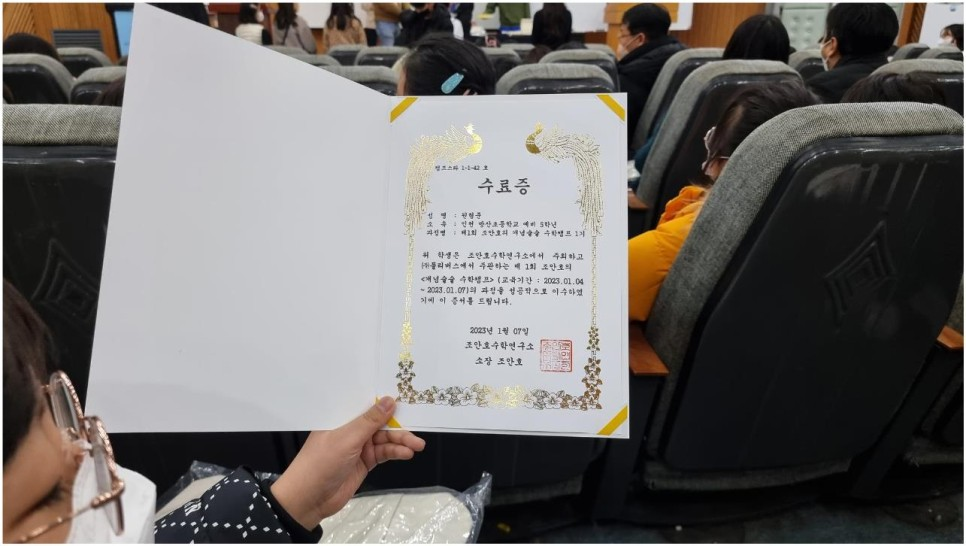 캠프스쿨 1-1-42 호
수료증
성 명 : 권형준
소 속 : 인천 한산초등학교 예비 5학년
과정명 : 제1회 조안호의 개념술술 수학캠프 1기
위 학생은 조안호수학연구소에서 주최하고
㈜폴리버스에서 주관하는 제 1회 조안호의
<개념술술 수학캠프> (교육기간 : 2023.01.04
~ 2023.01.07)의 과정을 성공적으로 이수하였
기에 이 증서를 드립니다.
2023년 1월 07일
조안호수학연구소
소장 조안호